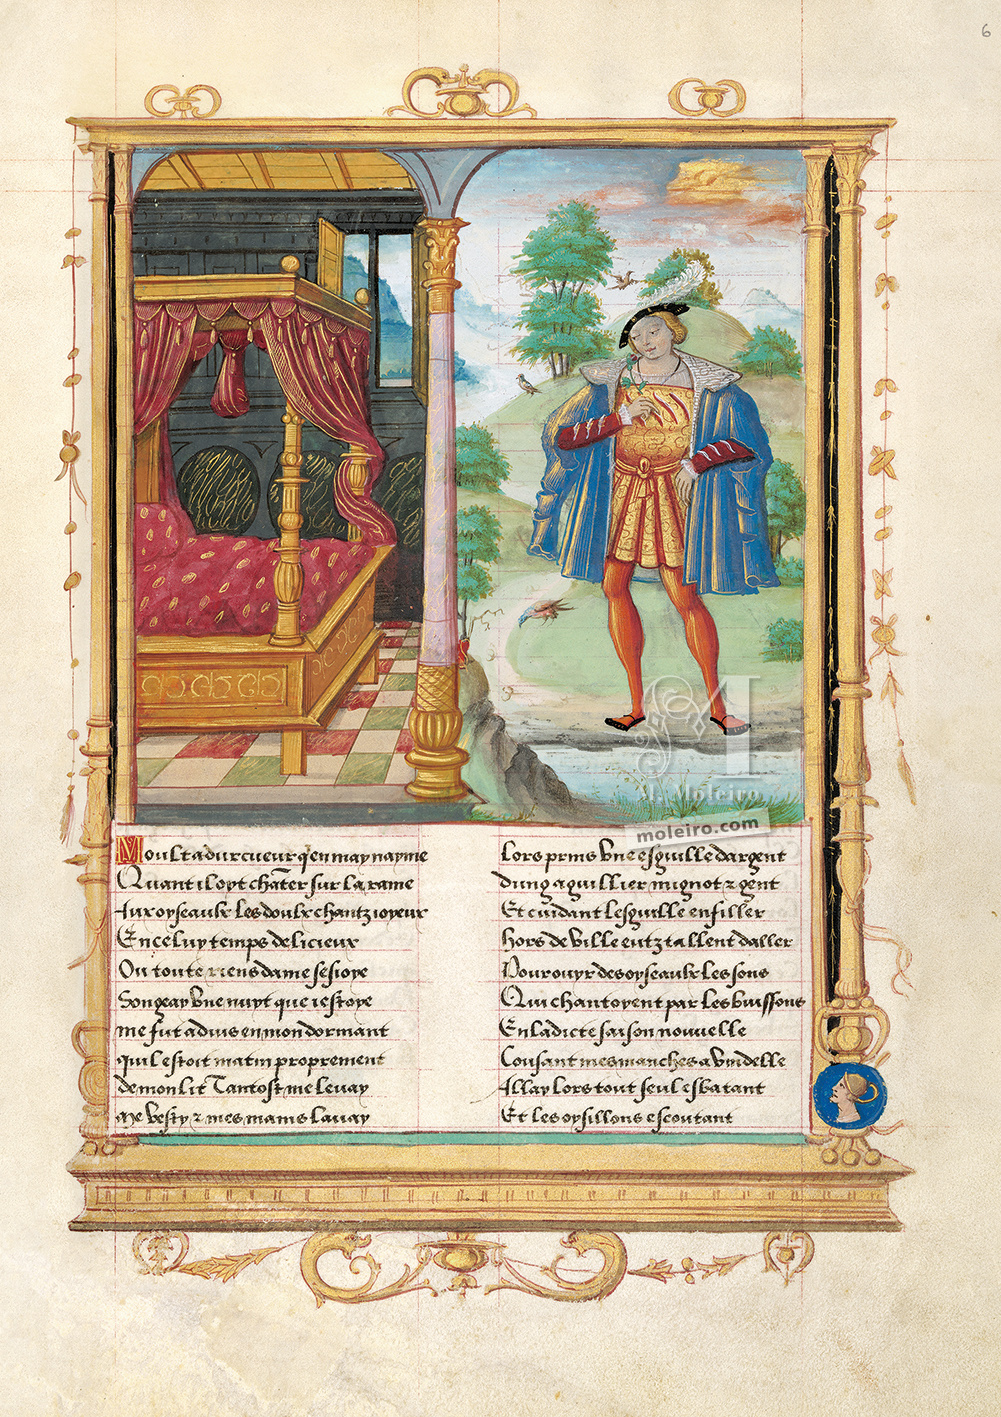 6
Moult a dur cueur q̃ en may n'ayme
Quant il oyt chãter sur la rame
Aux oyseaulx les doulx chantz ioyeux
En celuy temps delicieux
Ou toute riens dame sesioye
Songay vne nuyt que iestoye
me fut aduis en mon dormant
quil estoit matin proprement
de mon lit Tantost me leuay
me vesty & mes mains lauay
Lors prins vne esguille dargent
dung aguillier mignot & gent
Et cuidant lesguille enfiller
hors de ville euz tallent daller
Pour ouyr des oyseaulx les sons
Qui chantoyent par les buissons
En ladicte saison nouuelle
Cousant mes manches a vindelle
Allay lors tout seul esbatant
Et les oysillons escoutant
M. Moleiro
moleiro.com